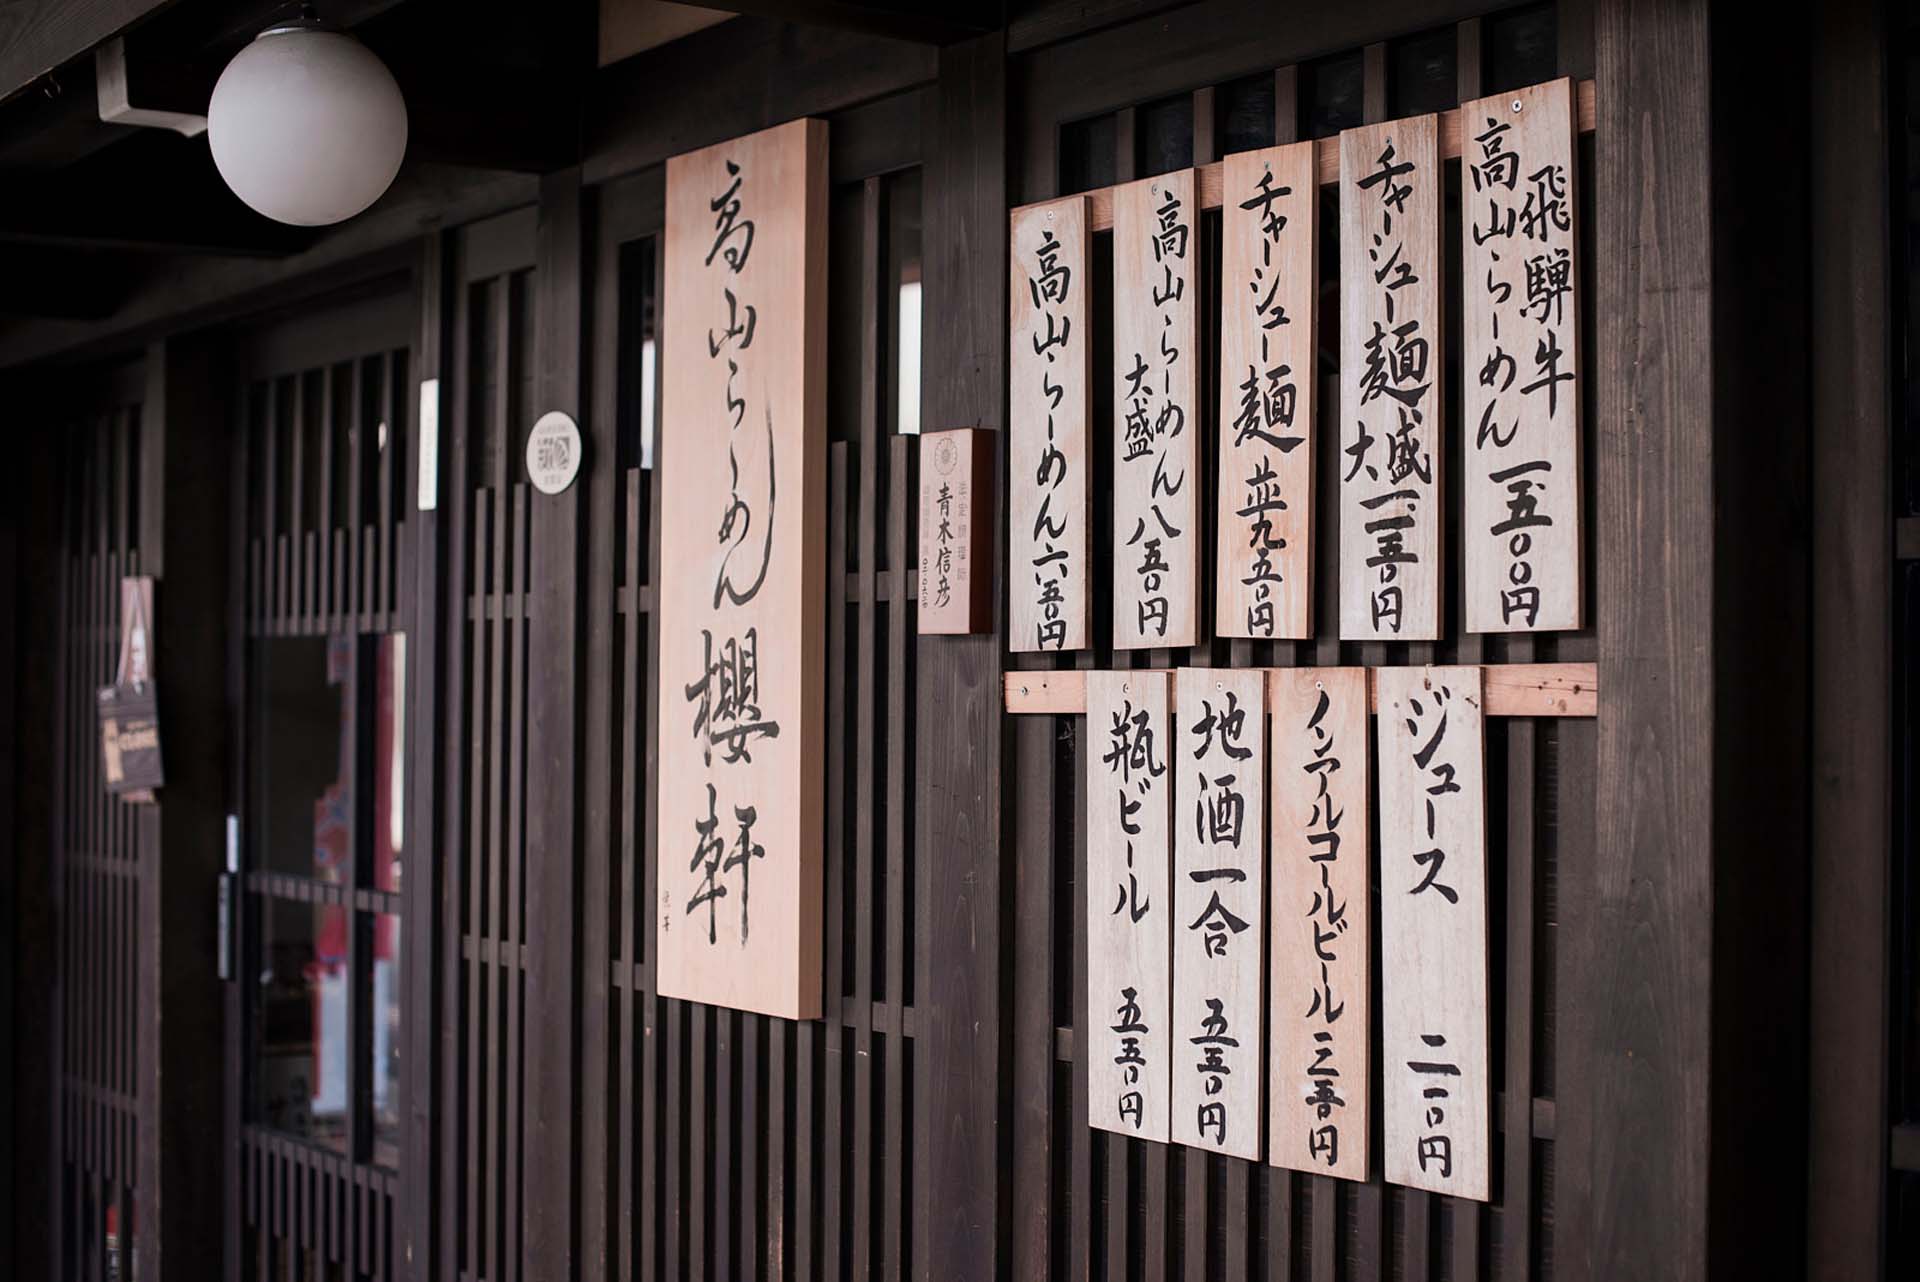 飛騨牛
高山らーめん 一、五〇〇円
チャーシュー麺
大盛 一、一五〇円
チャーシュー麺 並 九五〇円
高山らーめん 八五〇円
大盛
高山らーめん 六五〇円
ジュース 二一〇円
ノンアルコールビール 三五〇円
地酒一合 五五〇円
瓶ビール 五五〇円
青木信彦
高山らーめん 櫻軒